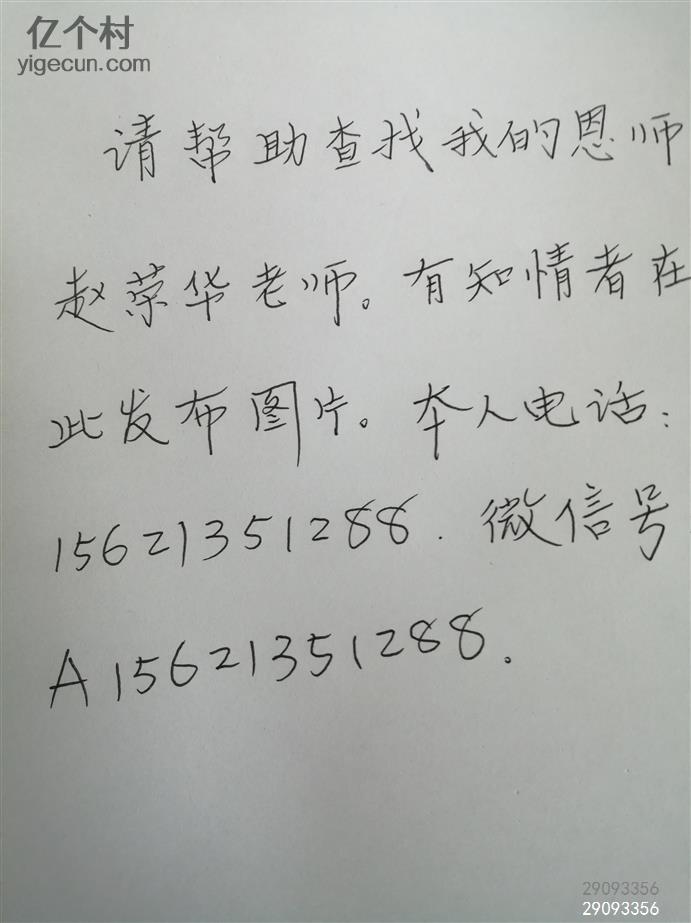 亿个村
yigecun.com
请帮助查找我的恩师
赵荣华老师。有知情者在
此发布图片。本人电话:
15621351288.微信号
A15621351288.
29093356
29093356